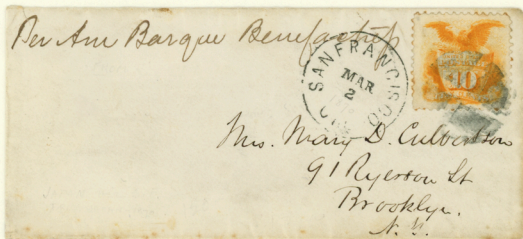 Per Am Barque Benefactress
SAN FRANCISCO
MAR
2
CAL
10
Mrs. Mary D. Culbertson
91 Ryerson St
Brooklyn.
N.Y.